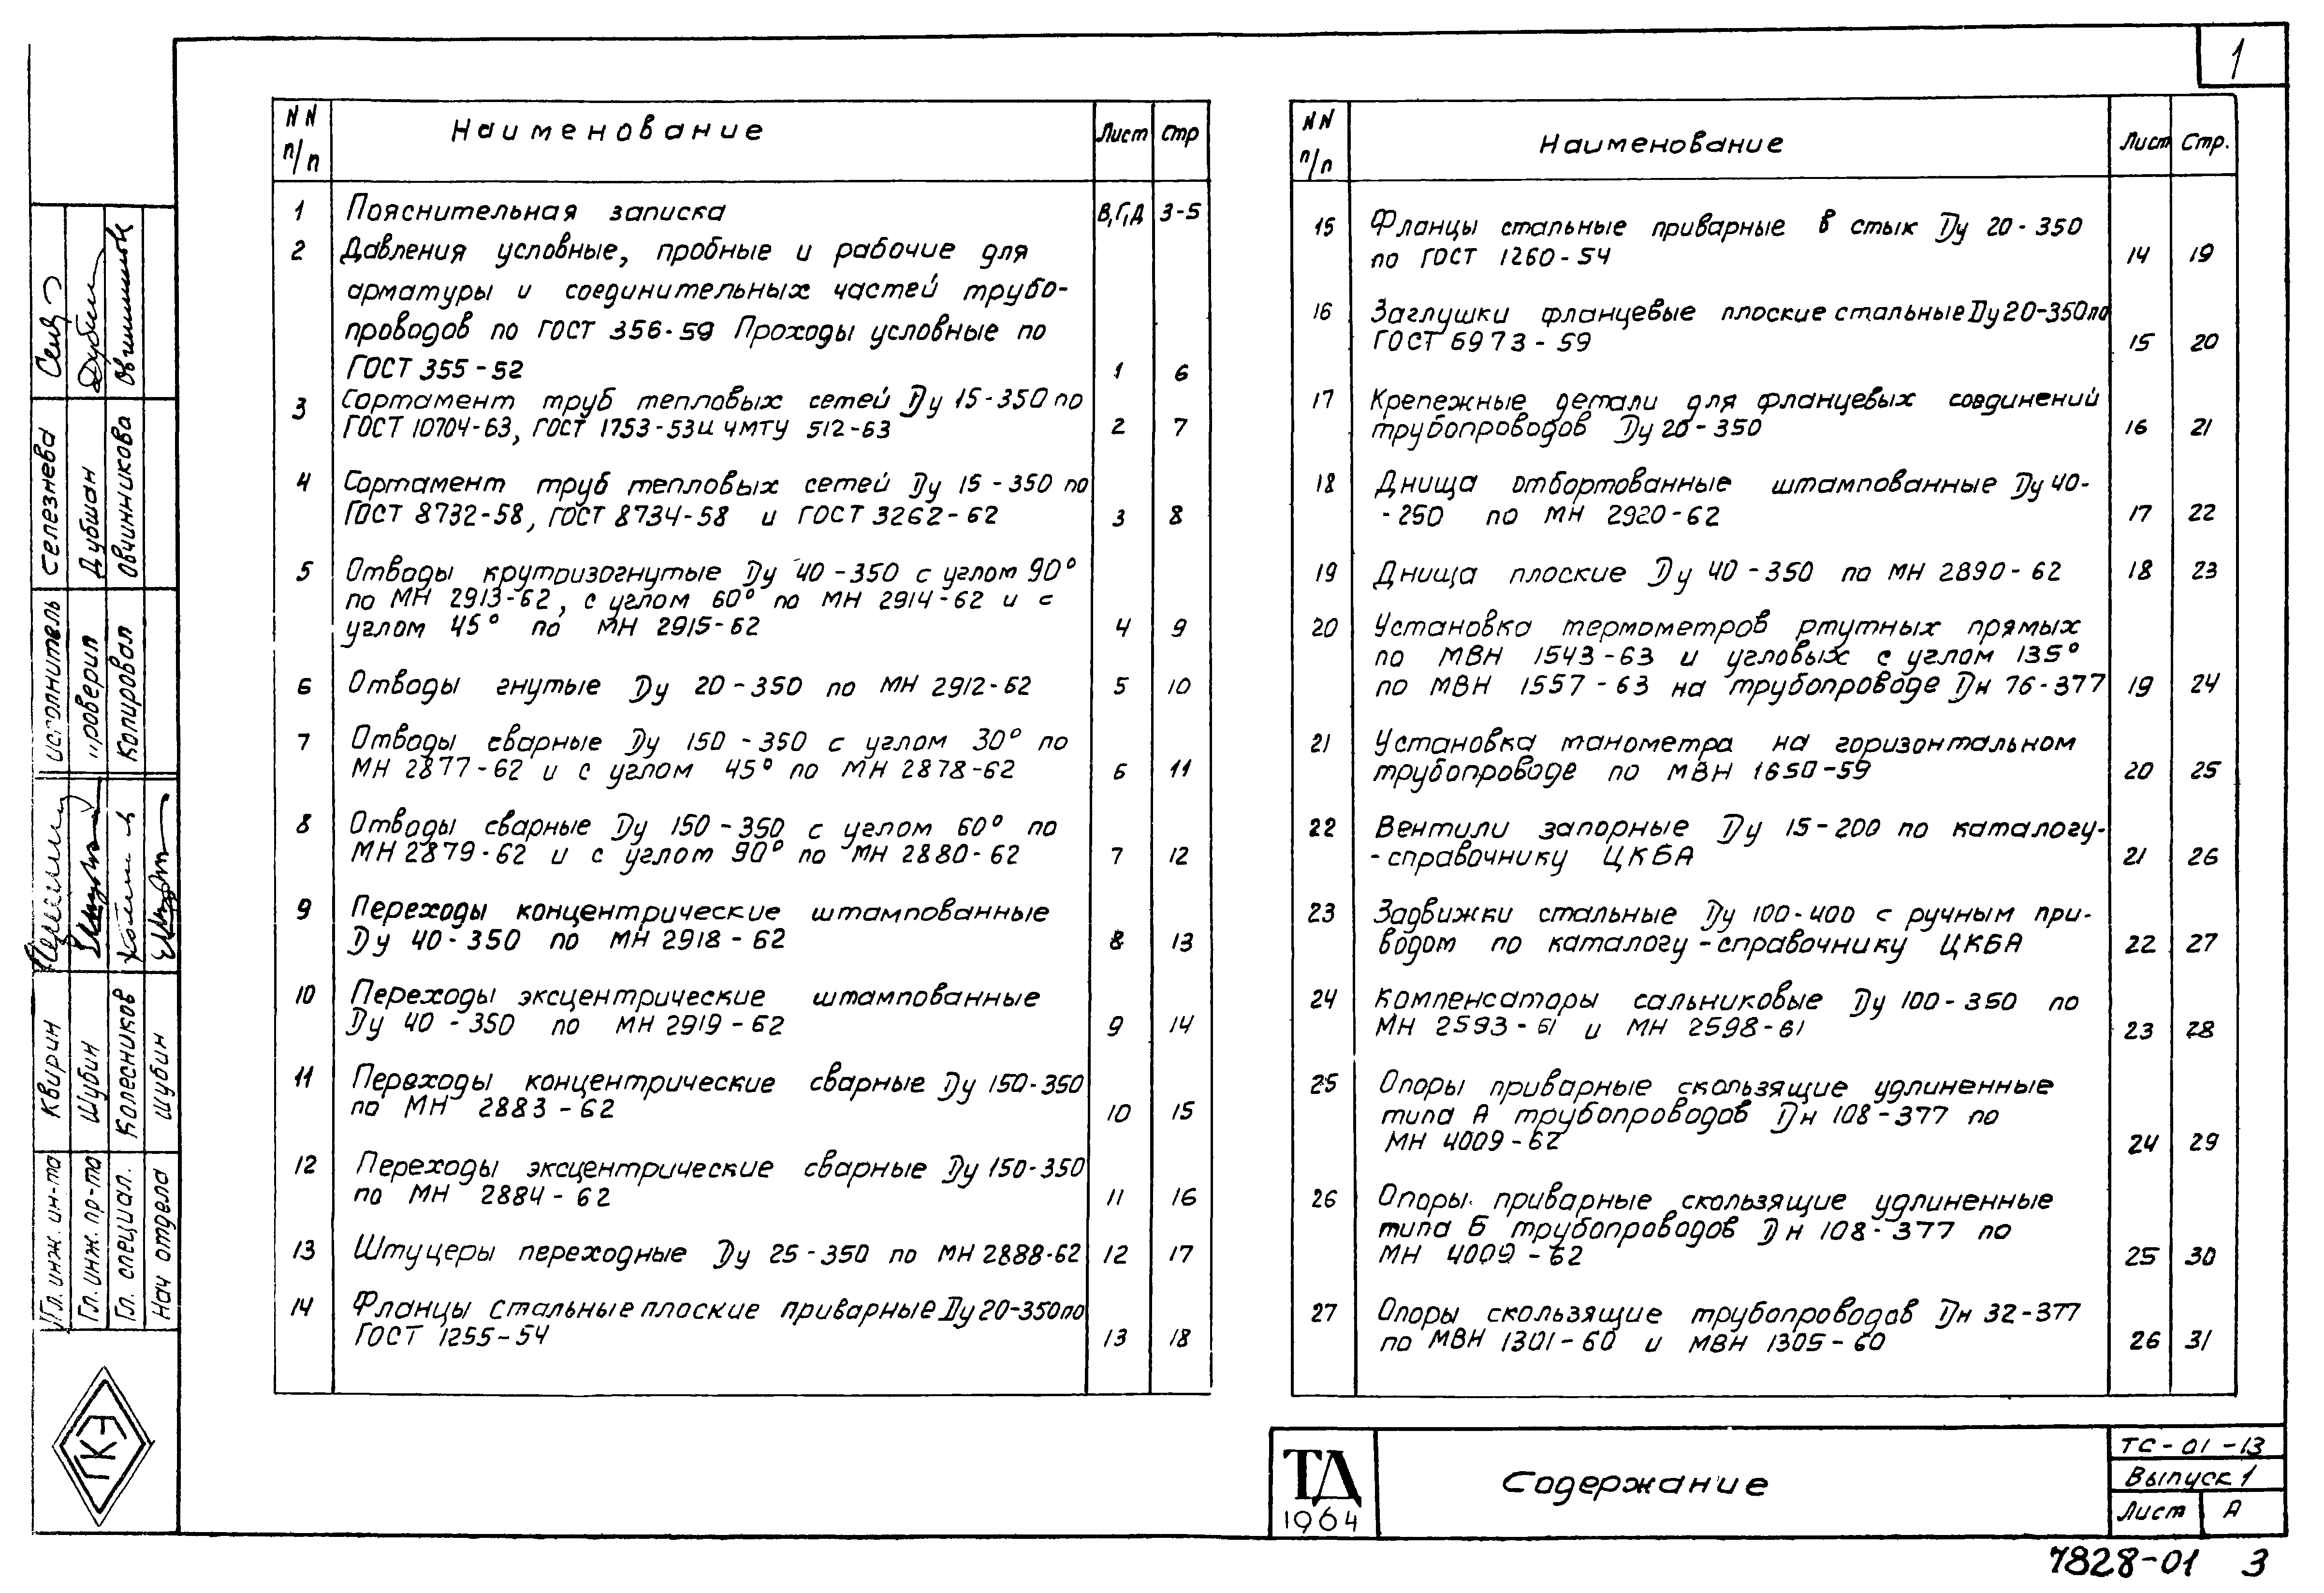 1
NN п/п Наименование Лист Стр
1 Пояснительная записка В,Г,Д 3-5
2 Давления условные, пробные и рабочие для
арматуры и соединительных частей трубо-
проводов по ГОСТ 356-59 Проходы условные по
ГОСТ 355-52 1 6
3 Сортамент труб тепловых сетей Dу 15-350 по
ГОСТ 10704-63, ГОСТ 1753-53 и ЧМТУ 512-63 2 7
4 Сортамент труб тепловых сетей Dу 15-350 по
ГОСТ 8732-58, ГОСТ 8734-58 и ГОСТ 3262-62 3 8
5 Отводы крутоизогнутые Dу 40-350 с углом 90°
по МН 2913-62, с углом 60° по МН 2914-62 и с
углом 45° по МН 2915-62 4 9
6 Отводы гнутые Dу 20-350 по МН 2912-62 5 10
7 Отводы сварные Dу 150-350 с углом 30° по
МН 2877-62 и с углом 45° по МН 2878-62 6 11
8 Отводы сварные Dу 150-350 с углом 60° по
МН 2879-62 и с углом 90° по МН 2880-62 7 12
9 Переходы концентрические штампованные
Dу 40-350 по МН 2918-62 8 13
10 Переходы эксцентрические штампованные
Dу 40-350 по МН 2919-62 9 14
11 Переходы концентрические сварные Dу 150-350
по МН 2883-62 10 15
12 Переходы эксцентрические сварные Dу 150-350
по МН 2884-62 11 16
13 Штуцеры переходные Dу 25-350 по МН 2888-62 12 17
14 Фланцы стальные плоские приварные Dу 20-350 по
ГОСТ 1255-54 13 18
NN п/п Наименование Лист Стр.
15 Фланцы стальные приварные в стык Dу 20-350
по ГОСТ 1260-54 14 19
16 Заглушки фланцевые плоские стальные Dу 20-350 по
ГОСТ 6973-59 15 20
17 Крепежные детали для фланцевых соединений
трубопроводов Dу 20-350 16 21
18 Днища отбортованные штампованные Dу 40-
-250 по МН 2920-62 17 22
19 Днища плоские Dу 40-350 по МН 2890-62 18 23
20 Установка термометров ртутных прямых
по МВН 1543-63 и угловых с углом 135°
по МВН 1557-63 на трубопроводе Dн 76-377 19 24
21 Установка манометра на горизонтальном
трубопроводе по МВН 1650-59 20 25
22 Вентили запорные Dу 15-200 по каталогу-
-справочнику ЦКБА 21 26
23 Задвижки стальные Dу 100-400 с ручным при-
водом по каталогу-справочнику ЦКБА 22 27
24 Компенсаторы сальниковые Dу 100-350 по
МН 2593-61 и МН 2598-61 23 28
25 Опоры приварные скользящие удлиненные
типа А трубопроводов Dн 108-377 по
МН 4009-62 24 29
26 Опоры приварные скользящие удлиненные
типа Б трубопроводов Dн 108-377 по
МН 4009-62 25 30
27 Опоры скользящие трубопроводов Dн 32-377
по МВН 1301-60 и МВН 1305-60 26 31
ТД
1964
Содержание
ТС-01-13
Выпуск 1
Лист А
7828-01 3
Гл. инж. ин-та Квирин
Гл. инж. пр-та Шубин
Гл. специал. Колесников
Нач отдела Шубин
исполнитель Селезнева
проверил Дубшан
Копировал Овчинникова
ГКЭ